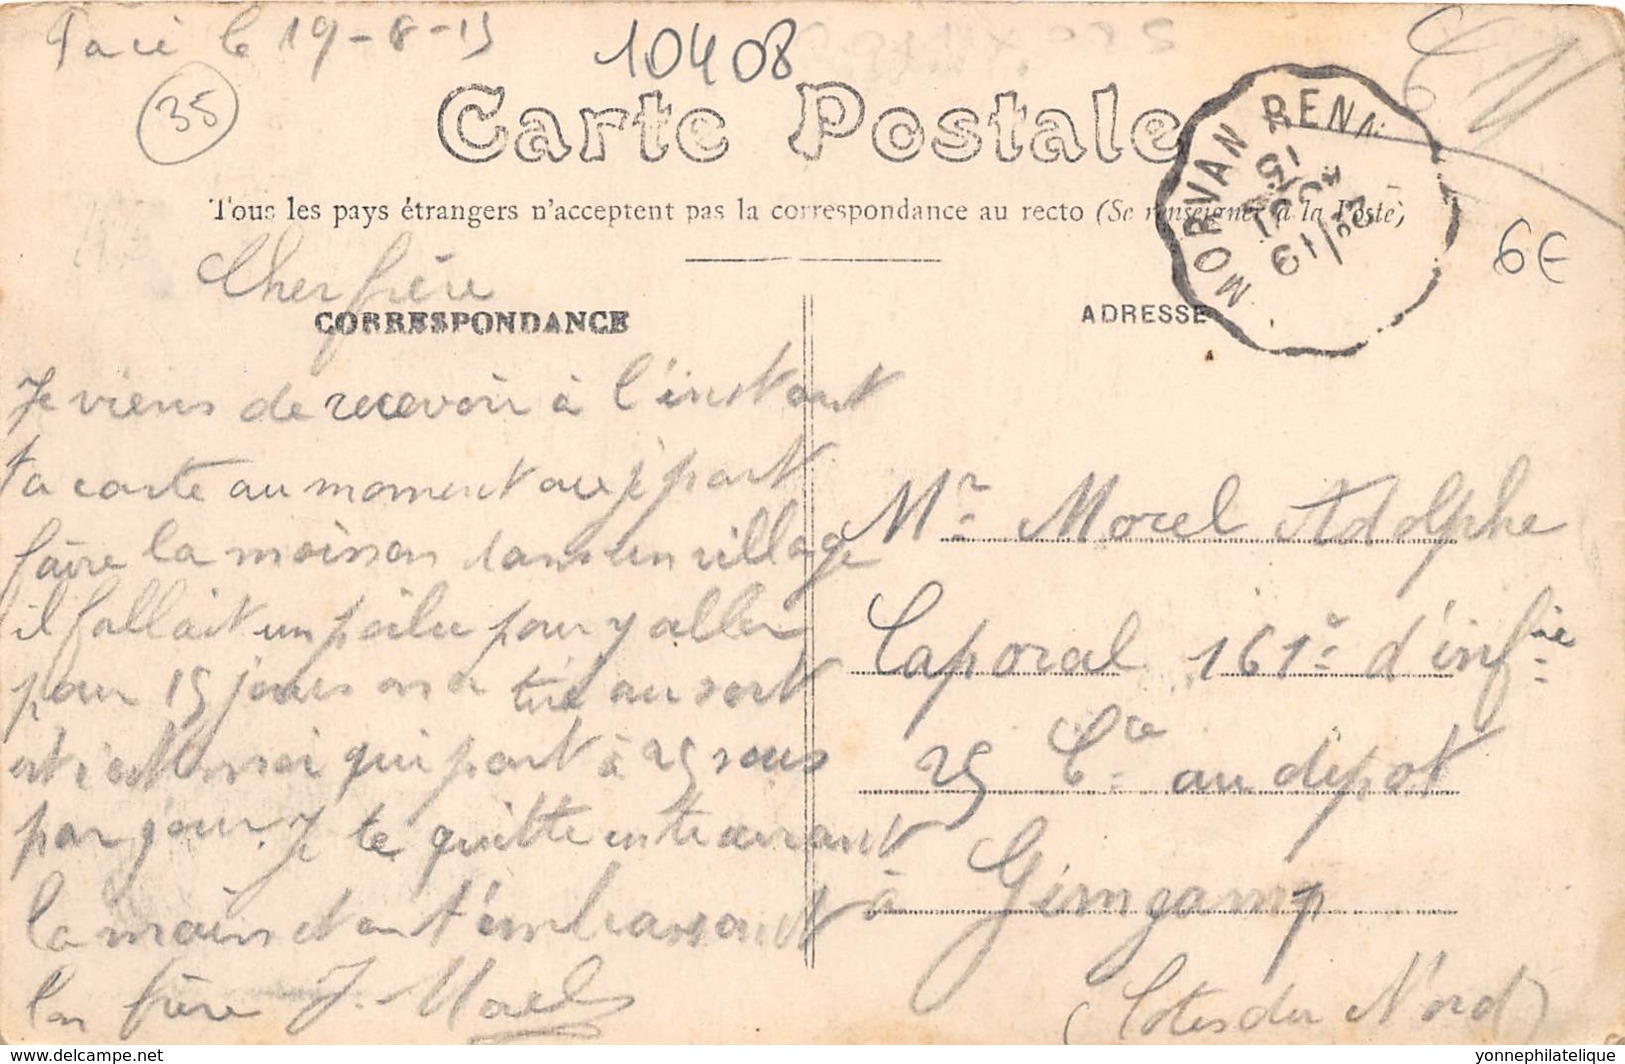 Pacé le 19-8-15
10408
35
Carte Postale
MORVAN RENN
Tous les pays étrangers n'acceptent pas la correspondance au recto (Se renseigner à la Poste)
6€
Cher frère
CORRESPONDANCE
Je viens de recevoir à l'instant
ta carte au moment où je part
faire la moisson dans un village
il fallait un poilu pour y aller
pour 15 jours on a tiré au sort
et c'est moi qui part à 25 sous
par jour. Je te quitte en te serrant
la main et en t'embrassant
ton frère J. Morel
ADRESSE
Mr Morel Adolphe
Caporal 161e d'infie
25 Cie au depot
à Gimgamp
(Côtes du Nord)
yonnephilatelique
delcampe.net